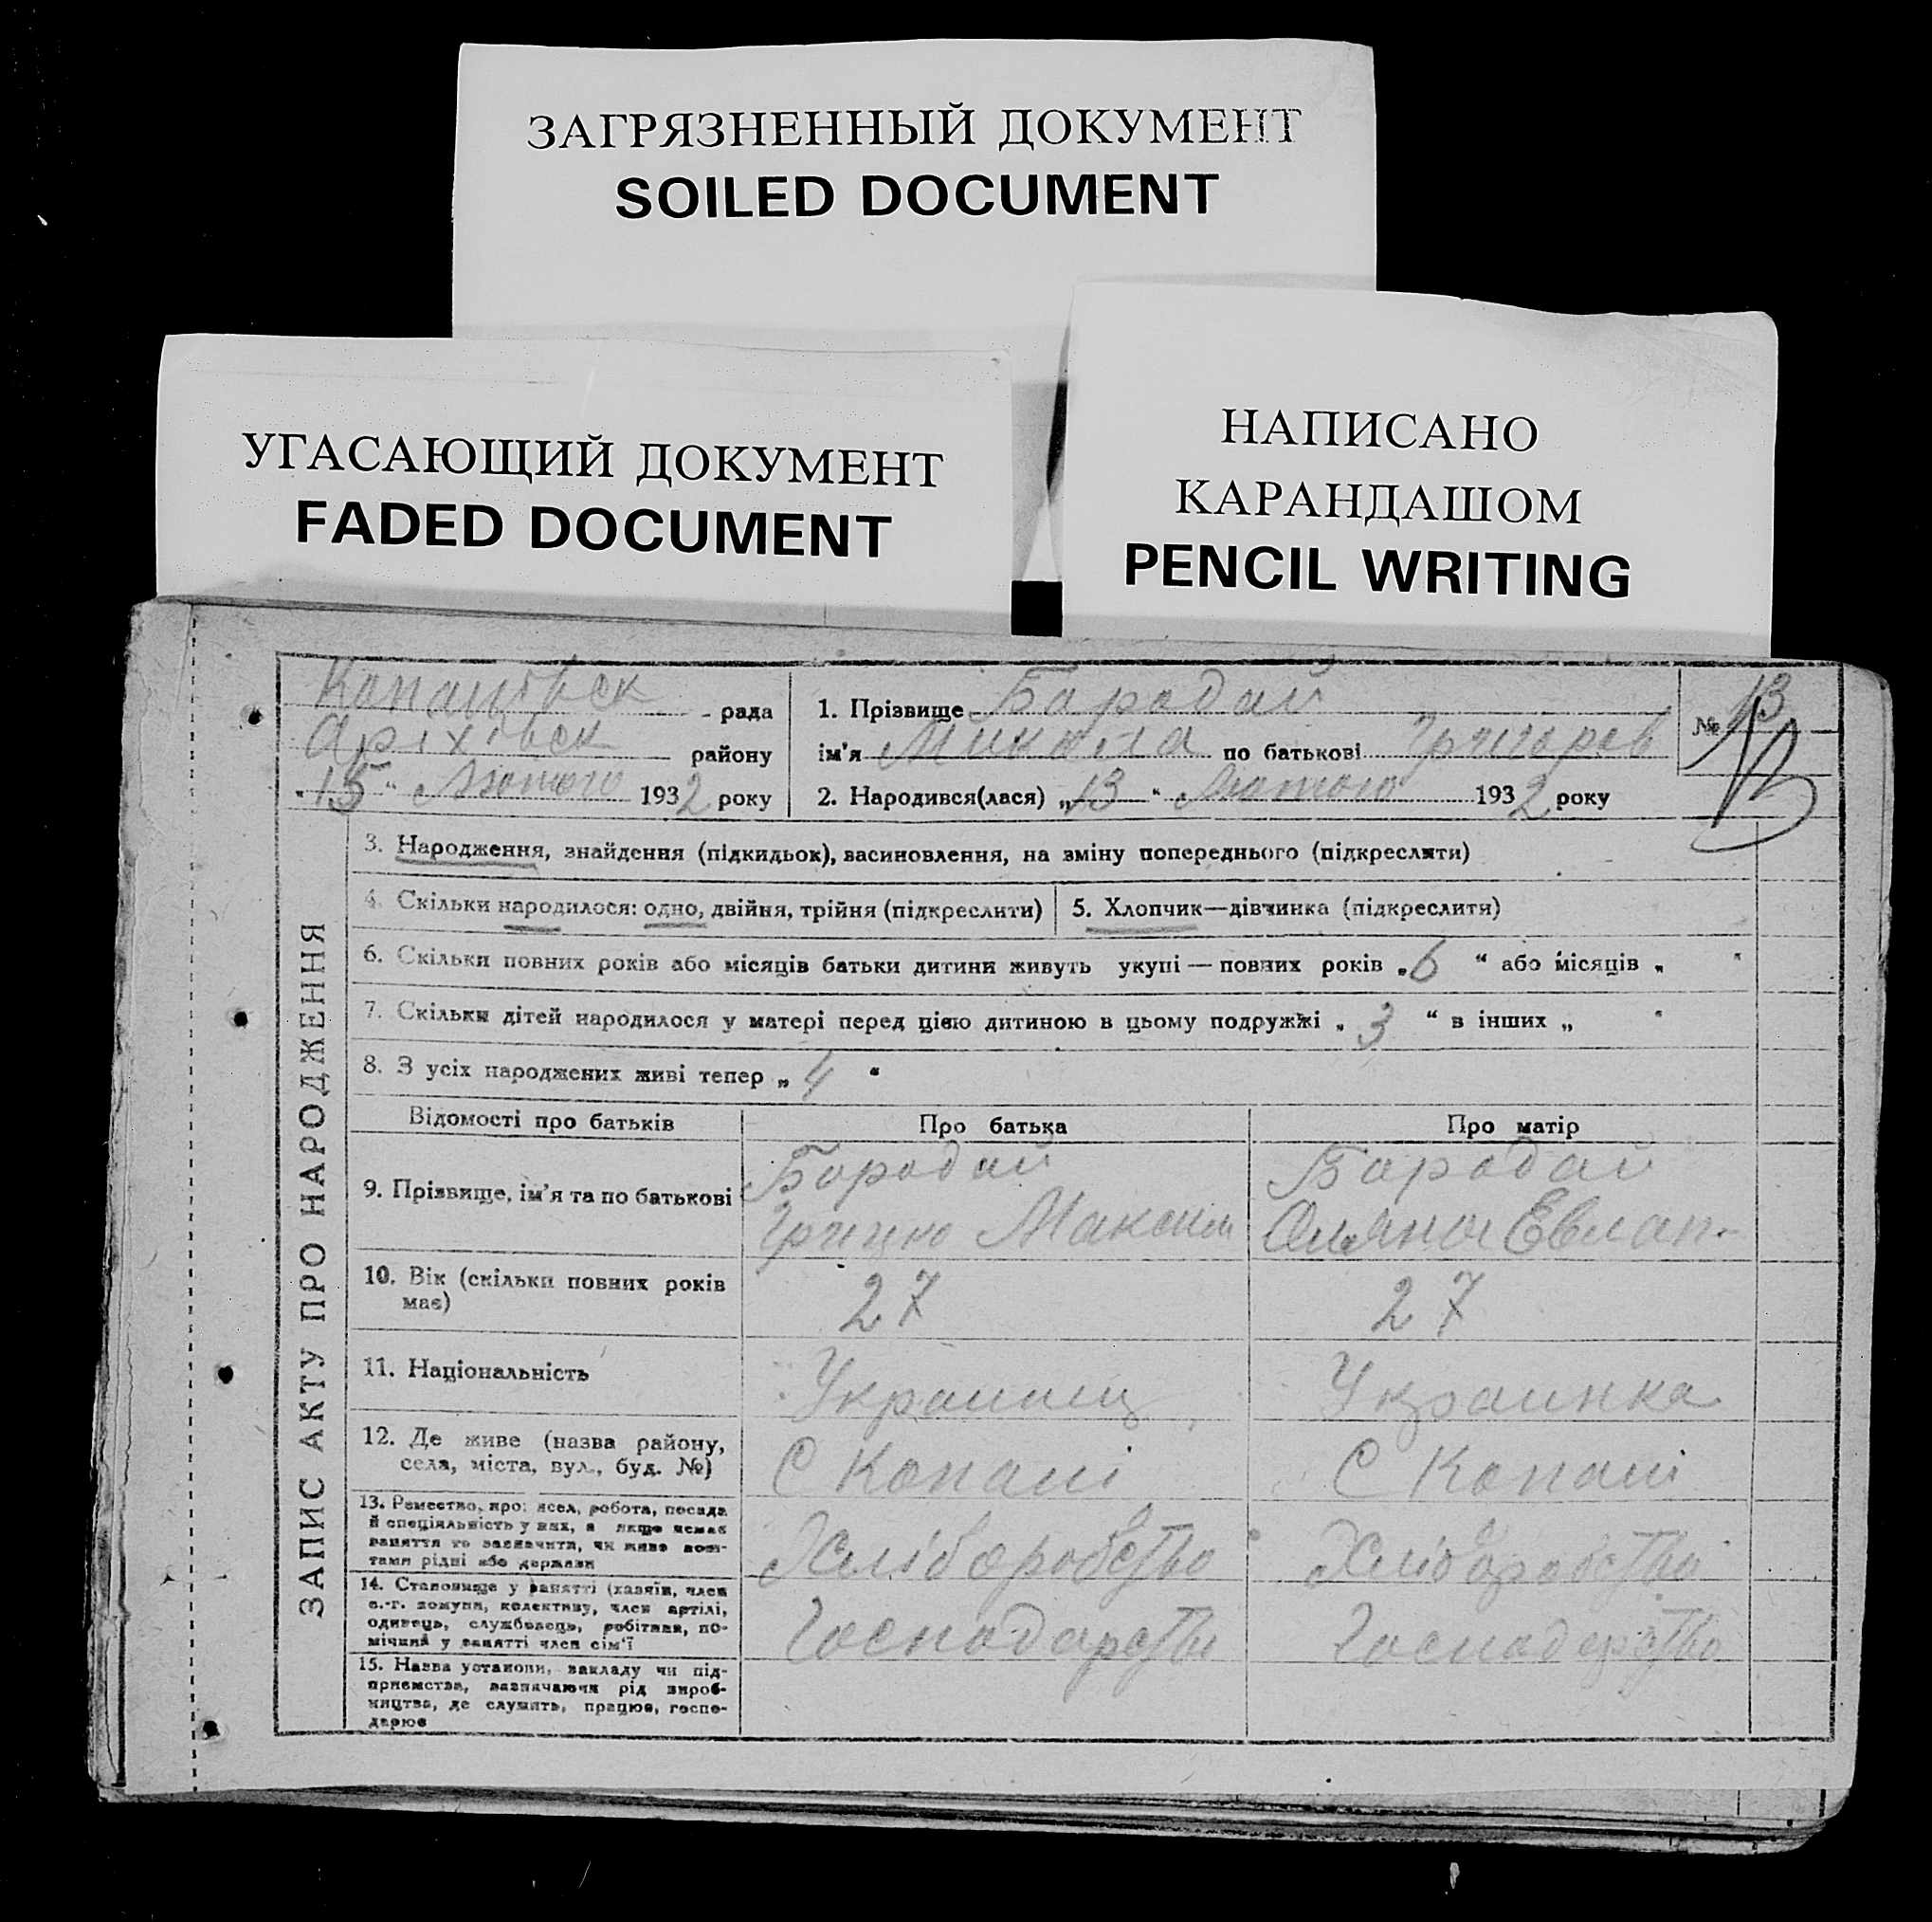 ЗАГРЯЗНЕННЫЙ ДОКУМЕНТ
SOILED DOCUMENT
УГАСАЮЩИЙ ДОКУМЕНТ
FADED DOCUMENT
НАПИСАНО
КАРАНДАШОМ
PENCIL WRITING
Копанівск рада
Оріхівск району
"15" Лютого 1932 року
1. Прізвище Бародай
ім'я Микола по батькові Григорев
2. Народився(лася) "13" Лютого 1932 року
№ 13
ЗАПИС АКТУ ПРО НАРОДЖЕННЯ
3. Народження, знайдення (підкидьок), васиновлення, на зміну попереднього (підкреслити)
4. Скільки народилося: одно, двійня, трійня (підкреслити)
5. Хлопчик—дівчинка (підкреслити)
6. Скільки повних років або місяців батьки дитини живуть укупі — повних років „6“ або місяців „ “
7. Скільки дітей народилося у матері перед цією дитиною в цьому подружжі „3“ в інших „ “
8. З усіх народжених живі тепер „4“
Відомості про батьків
Про батька
Про матір
9. Прізвище, ім'я та по батькові
Бородай
Грицко Максим
Бародай
Оляна Евлап.
10. Вік (скільки повних років
має)
27
27
11. Національність
Украинец
Украинка
12. Де живе (назва району,
села, міста, вул., буд. №)
С Копані
С Копані
13. Ремество, професія, робота, посада
й спеціяльність у них, а якщо немає
заняття то зазначити, чи живе кош-
тами рідні або держави
Хліборобство
Хліборобство
14. Становище у занятті (хазяїн, член
с.-г. комуни, колективу, член артілі,
одинець, службовець, робітник, по-
мічний у занятті член сім'ї
Господарство
Господарство
15. Назва установи, закладу чи під-
приємства, зазначаючи рід вироб-
ництва, де служить, працює, госпо-
дарює